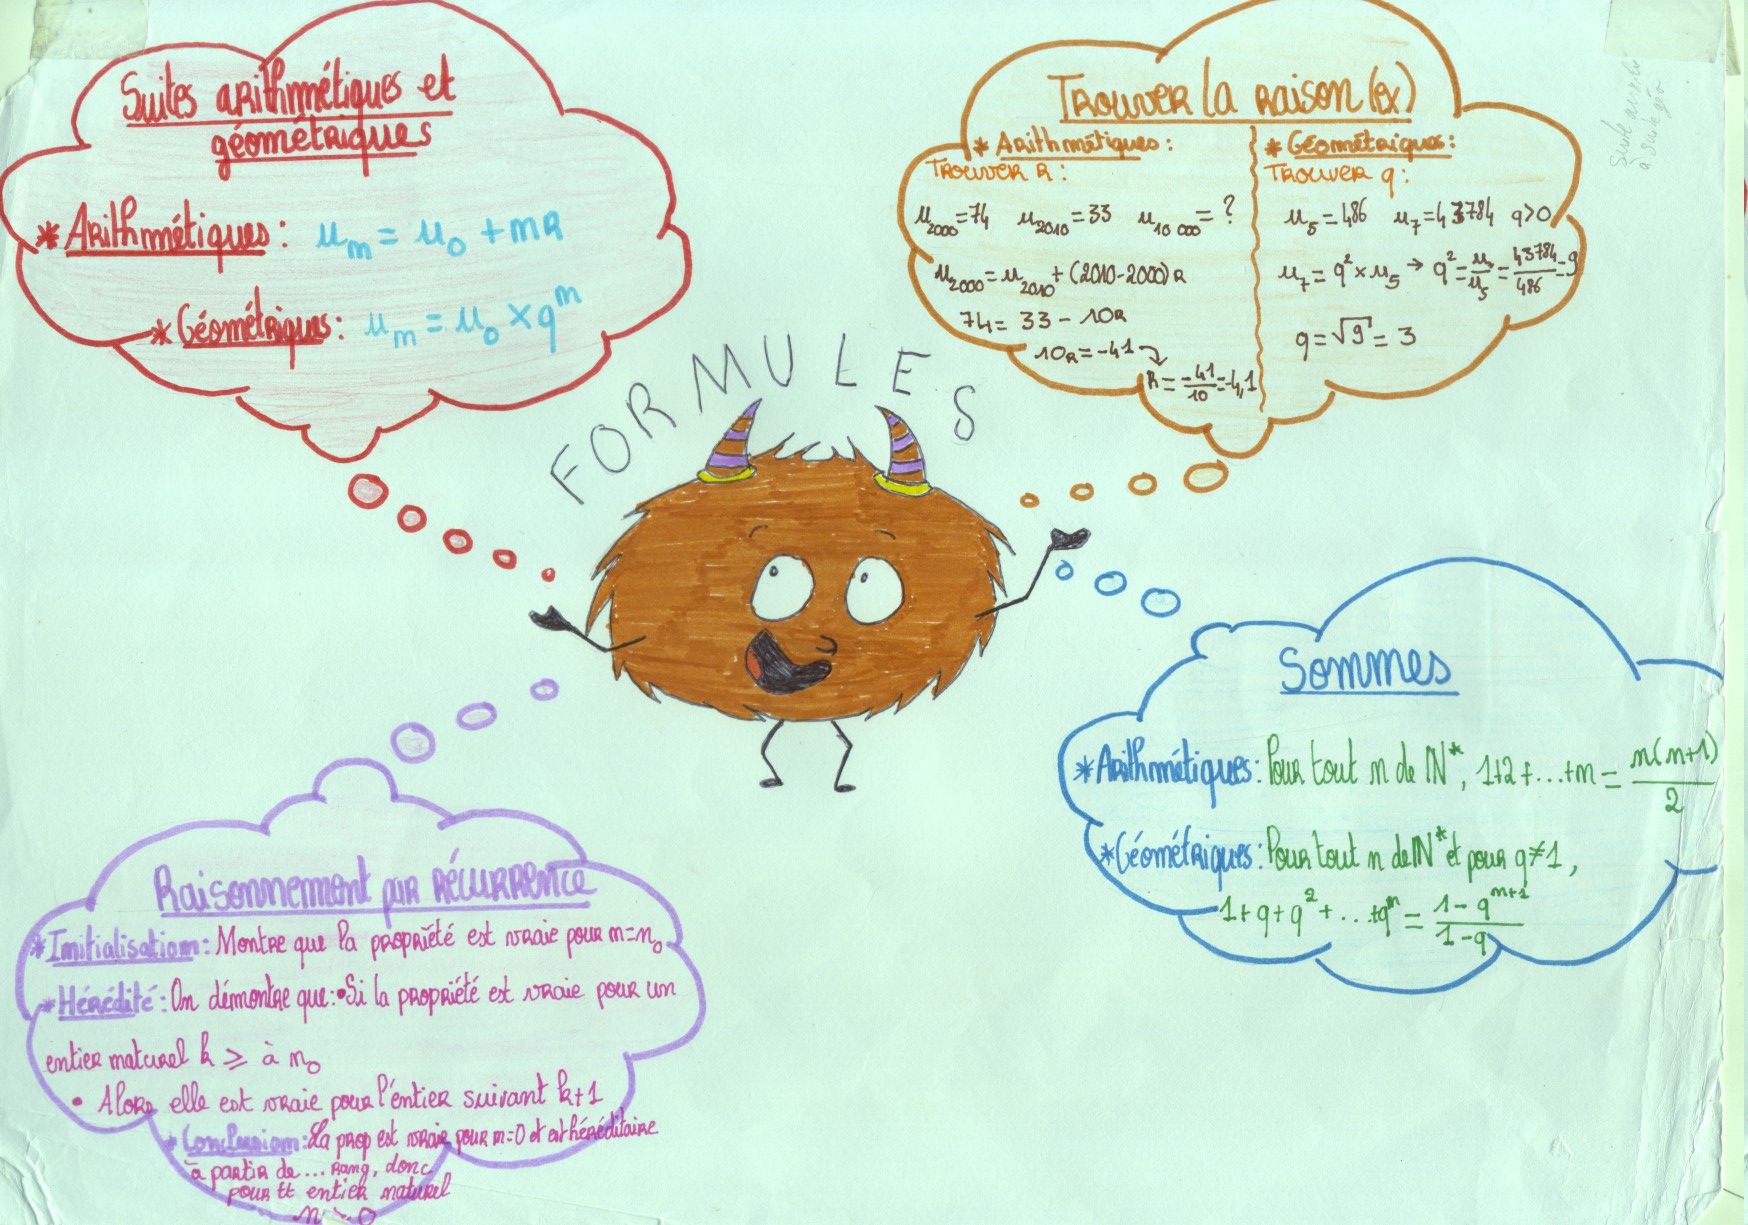 Suites arithmétiques et
géométriques
* Arithmétiques : un = u0 + nR
* Géométriques : un = u0 × q^n
Trouver la raison (ex)
* Arithmétiques :
Trouver R :
u2000 = 74 u2010 = 33 u10 000 = ?
u2000 = u2010 + (2010-2000)R
74 = 33 - 10R
10R = -41 →
R = -41/10 = -4,1
* Géométriques :
Trouver q :
u5 = 486 u7 = 43784 q>0
u7 = q² × u5 → q² = u7/u5 = 43784/486 = 9
q = √9 = 3
FORMULES
Sommes
* Arithmétiques : Pour tout n de ℕ*, 1+2+...+n = n(n+1)/2
* Géométriques : Pour tout n de ℕ* et pour q≠1,
1+q+q²+...+q^n = (1-q^(n+1))/(1-q)
Raisonnement par récurrence
* Initialisation : Montre que la propriété est vraie pour n=n0
* Hérédité : On démontre que : • Si la propriété est vraie pour un
entier naturel k ⩾ à n0
• Alors elle est vraie pour l'entier suivant k+1
* Conclusion : La prop est vraie pour n=0 et est héréditaire
à partir de ... rang, donc
pour tt entier naturel